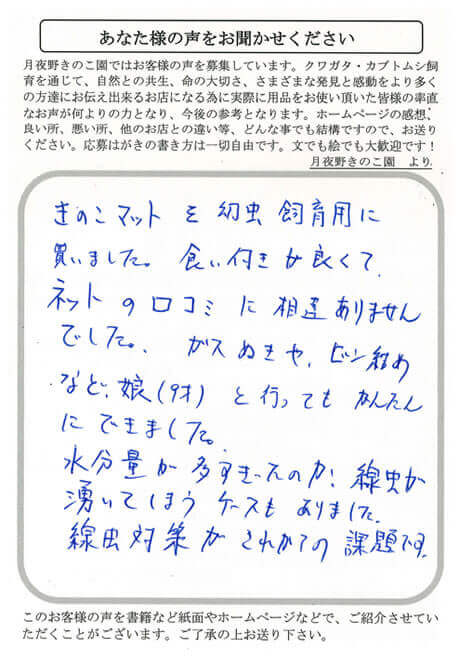 あなた様の声をお聞かせください
月夜野きのこ園ではお客様の声を募集しています。クワガタ・カブトムシ飼
育を通じて、自然との共生、命の大切さ、さまざまな発見と感動をより多く
の方達にお伝え出来るお店になる為に実際に用品をお使い頂いた皆様の率直
なお声が何よりの力となり、今後の参考となります。ホームページの感想、
良い所、悪い所、他のお店との違い等、どんな事でも結構ですので、お送り
ください。応募はがきの書き方は一切自由です。文でも絵でも大歓迎です！
月夜野きのこ園　より
きのこマットを幼虫飼育用に
買いました。食い付きが良くて
ネットの口コミに相違ありません
でした。ガスぬきや、ビン詰め
など、娘(9才)と行ってもかんたん
にできました。
水分量が多すぎたのか、線虫が
湧いてしまうケースもありました。
線虫対策がこれからの課題です。
このお客様の声を書籍など紙面やホームページなどで、ご紹介させてい
ただくことがございます。ご了承の上お送り下さい。